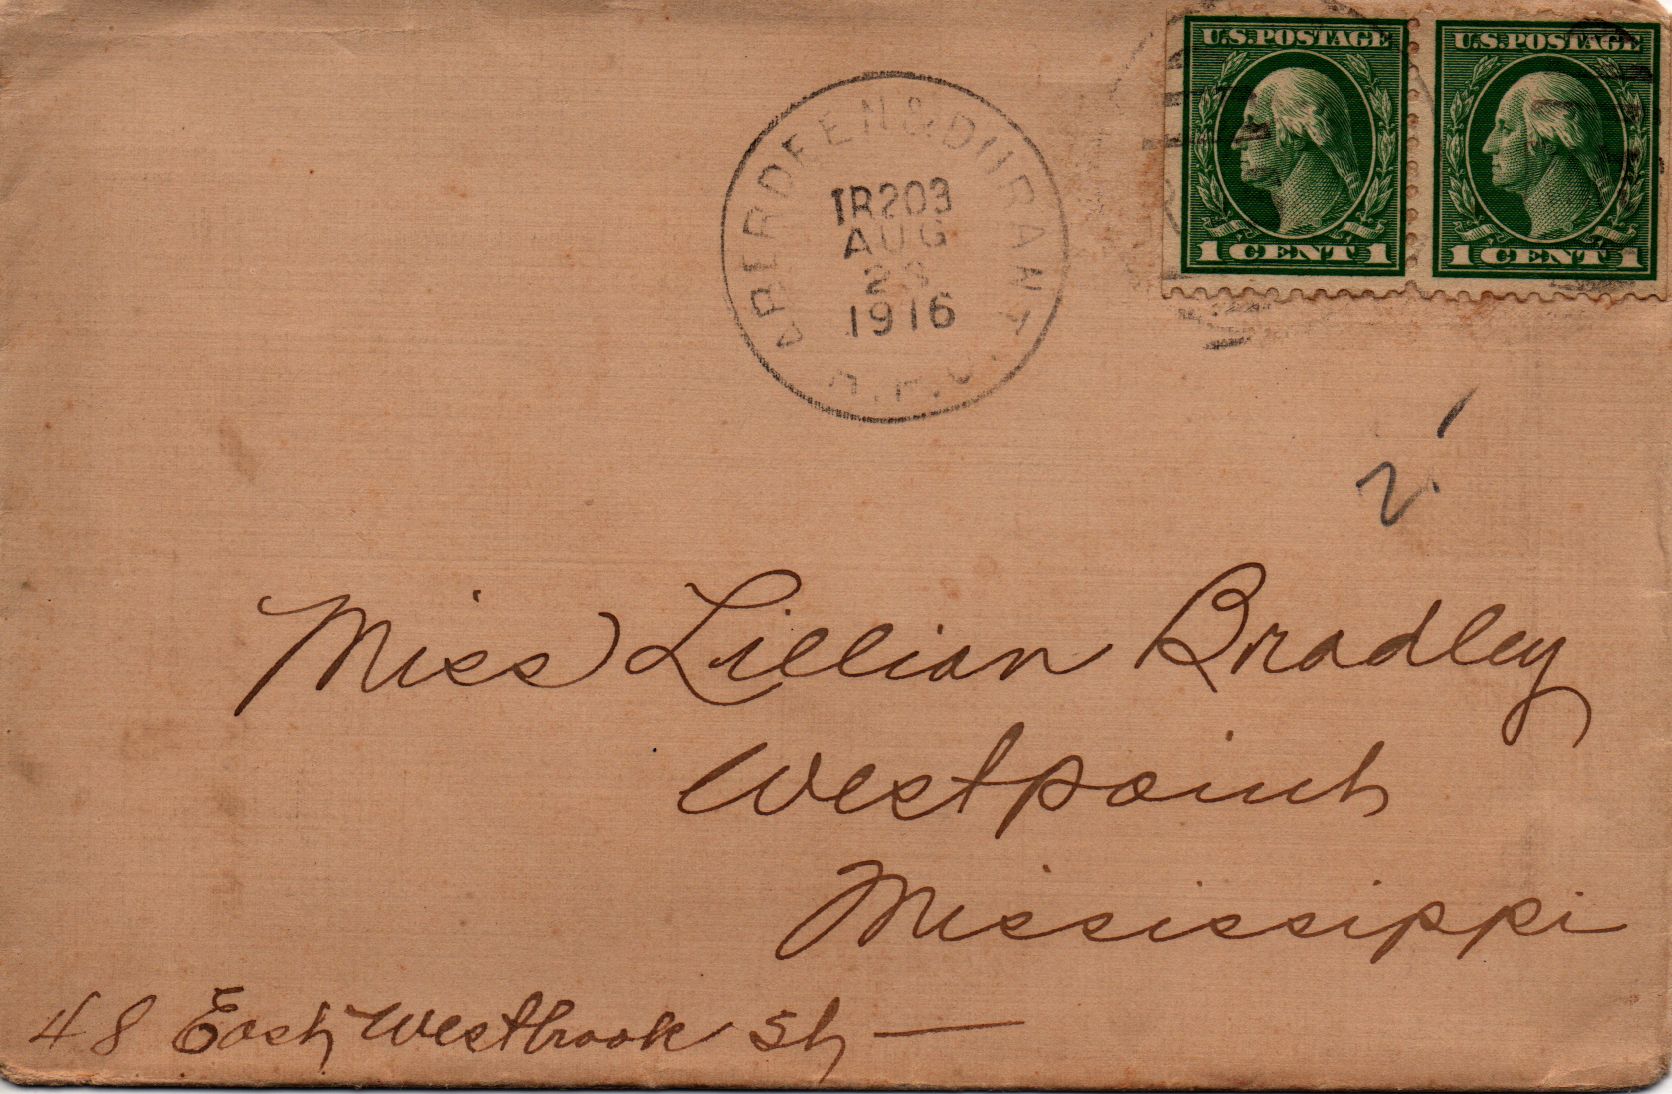 U.S. POSTAGE
1 CENT 1
U.S. POSTAGE
1 CENT 1
ABERDEEN & DURANT
TR203
AUG
1916
R.P.O.
2
Miss Lillian Bradley
Westpoint
Mississippi
48 East Westbrook St